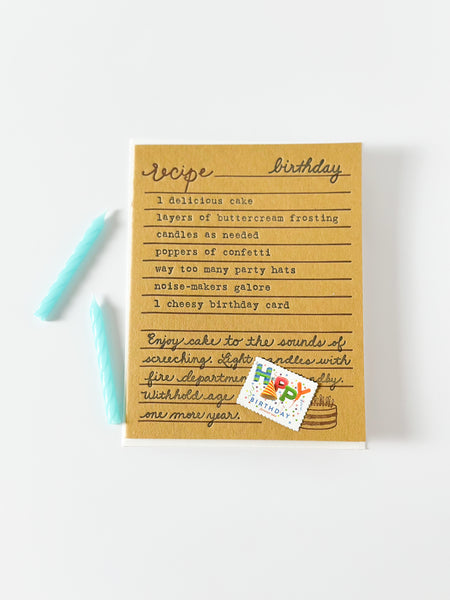 recipe birthday
1 delicious cake
layers of buttercream frosting
candles as needed
poppers of confetti
way too many party hats
noise-makers galore
1 cheesy birthday card
Enjoy cake to the sounds of
screeching. Light candles with
fire department
Withhold age
one more year.
HAPPY
BIRTHDAY